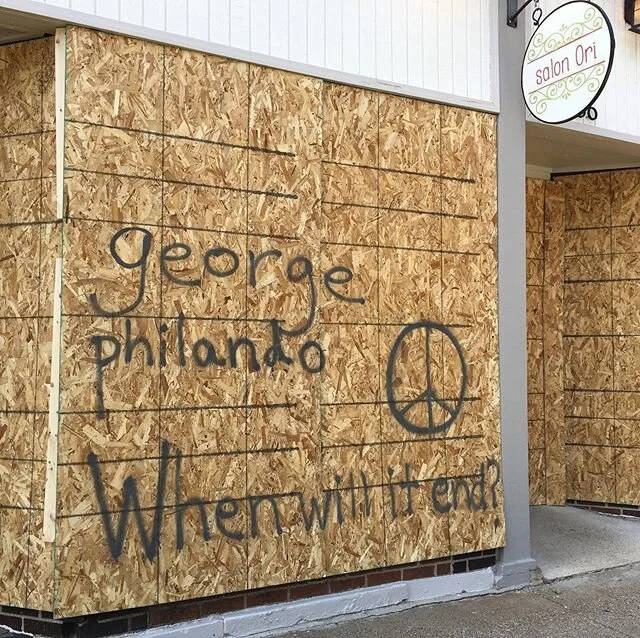 salon Ori
george
philando
When will it end?